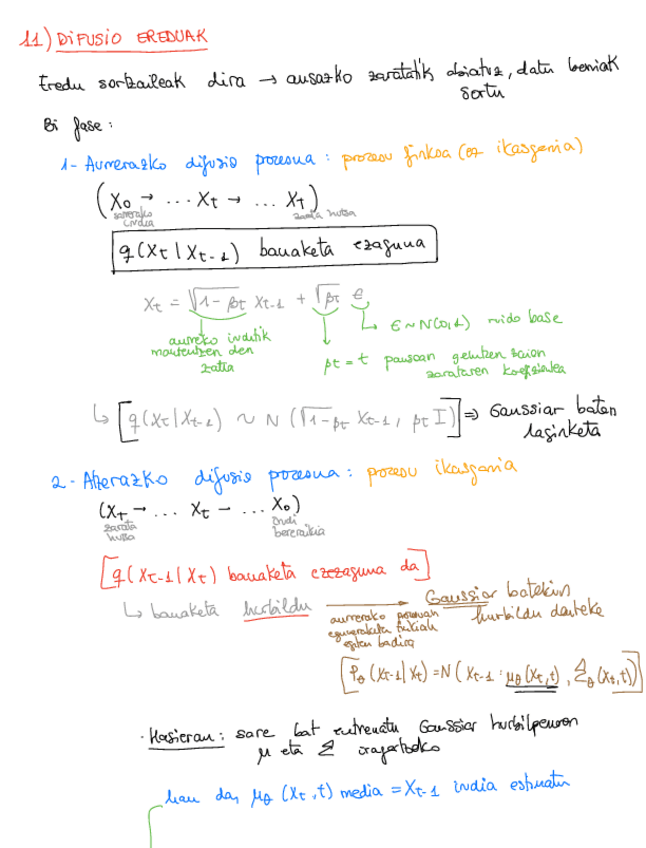 11) DIFUSIO EREDUAK
Eredu sortzaileak dira → ausazko zaratatik abiatuz, datu berriak
sortu
Bi fase:
1- Aurrerazko difusio prozesua: prozesu finkoa (ez ikasgarria)
(X₀ → ... Xt → ... XT)
sarrerako irudia
zarata hutsa
q(Xt | Xt-1) banaketa ezaguna
Xt = √1-βt Xt-1 + √βt ϵ
ϵ ~ N(0,1)
aurreko iruditik
mantentzen den
zatia
βt = t pausoan gehitzen zaion
zarataren koefizientea
↳ [q(Xt | Xt-1) ~ N (√1-βt Xt-1, βt I)] ⇒ Gaussiar baten
laginketa
2- Atzerazko difusio prozesua: prozesu ikasgarria
(XT → ... Xt → ... X₀)
zarata
hutsa
irudi
berreraikia
[q(Xt-1 | Xt) banaketa ezezaguna da]
↳ banaketa hurbildu → Gaussiar batekin
hurbildu daiteke
aurrerako prozesuan
eguneraketa txikiak
egiten badira
[Pθ (Xt-1 | Xt) = N (Xt-1; μθ (Xt, t), Σθ (Xt, t))]
· Hasieran: sare bat entrenatu Gaussiar hurbilpenaren
μ eta Σ iragartzeko
hau da, μθ (Xt, t) media = Xt-1 irudia estimatu